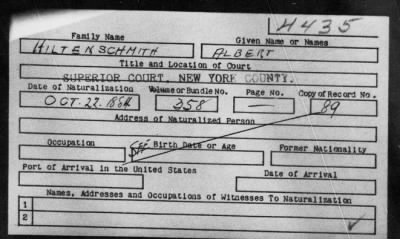 H435
Family Name Given Name or Names
HILTENSCHMITH ALBERT
Title and Location of Court
SUPERIOR COURT, NEW YORK COUNTY.
Date of Naturalization Volume or Bundle No. Page No. Copy of Record No.
OCT. 22. 1864 358 — 89
Address of Naturalized Person
Occupation Birth Date or Age Former Nationality
Port of Arrival in the United States Date of Arrival
Names, Addresses and Occupations of Witnesses To Naturalization
1
2